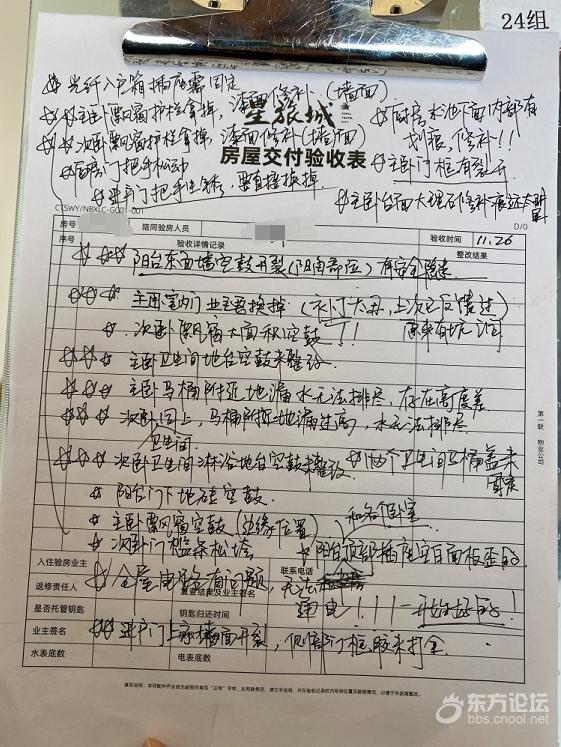 24组
光纤入户箱插座需固定
主卧飘窗护栏拿掉,漆面修补.(墙面)
星辰城
次卧飘窗护栏拿掉,漆面修补(墙面)
厨房门把手松动
进户门把手生锈,要直接换掉
厨房水池下面内部有
划痕,修补!!
主卧门框有裂开
主卧台面大理石修补痕迹太明显
房屋交付验收表
CTSWY/NBXLC-G001-001
D/0
房号
陪同验房人员
验收时间 11.26
序号
验收详情记录
整改结果
阳台东面墙空鼓开裂(阳角部位)有安全隐患
主卧室内门业主要换掉(太丑,上次已反馈过
次卧飘窗大面积空鼓!!
主卧卫生间地台空鼓未整改
主卧马桶附近地漏水无法排尽.存在高度差
次卧同上,马桶附近地漏过高,水无法排尽
卫生间
次卧卫生间淋浴地台空鼓未整改
两个卫生间马桶盖未
阳台门下地砖空鼓
主卧飘窗空鼓(边缘位置)
和各个卧室
次卧门槛条松垮
阳台顶部插座空白面板歪的
入住验房业主
联系电话
全屋电路有问题,无法
返修责任人
复查结果及业主签名
通电!!!一开始好的!
是否托管钥匙
钥匙归还时间
业主签名
进户门上承墙面开裂,但门框胶未打全
水表底数
电表底数
第一联 物业公司
东方论坛
bbs.cnool.net